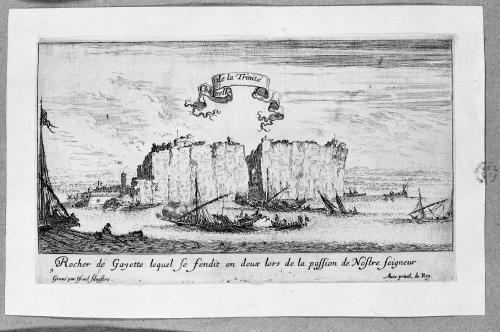 de la Trinité
Rocher de Gayette lequel se fendit en deux lors de la passion de Nostre seigneur
9
Graué par Israel silvestre
Auec privil. du Roy.